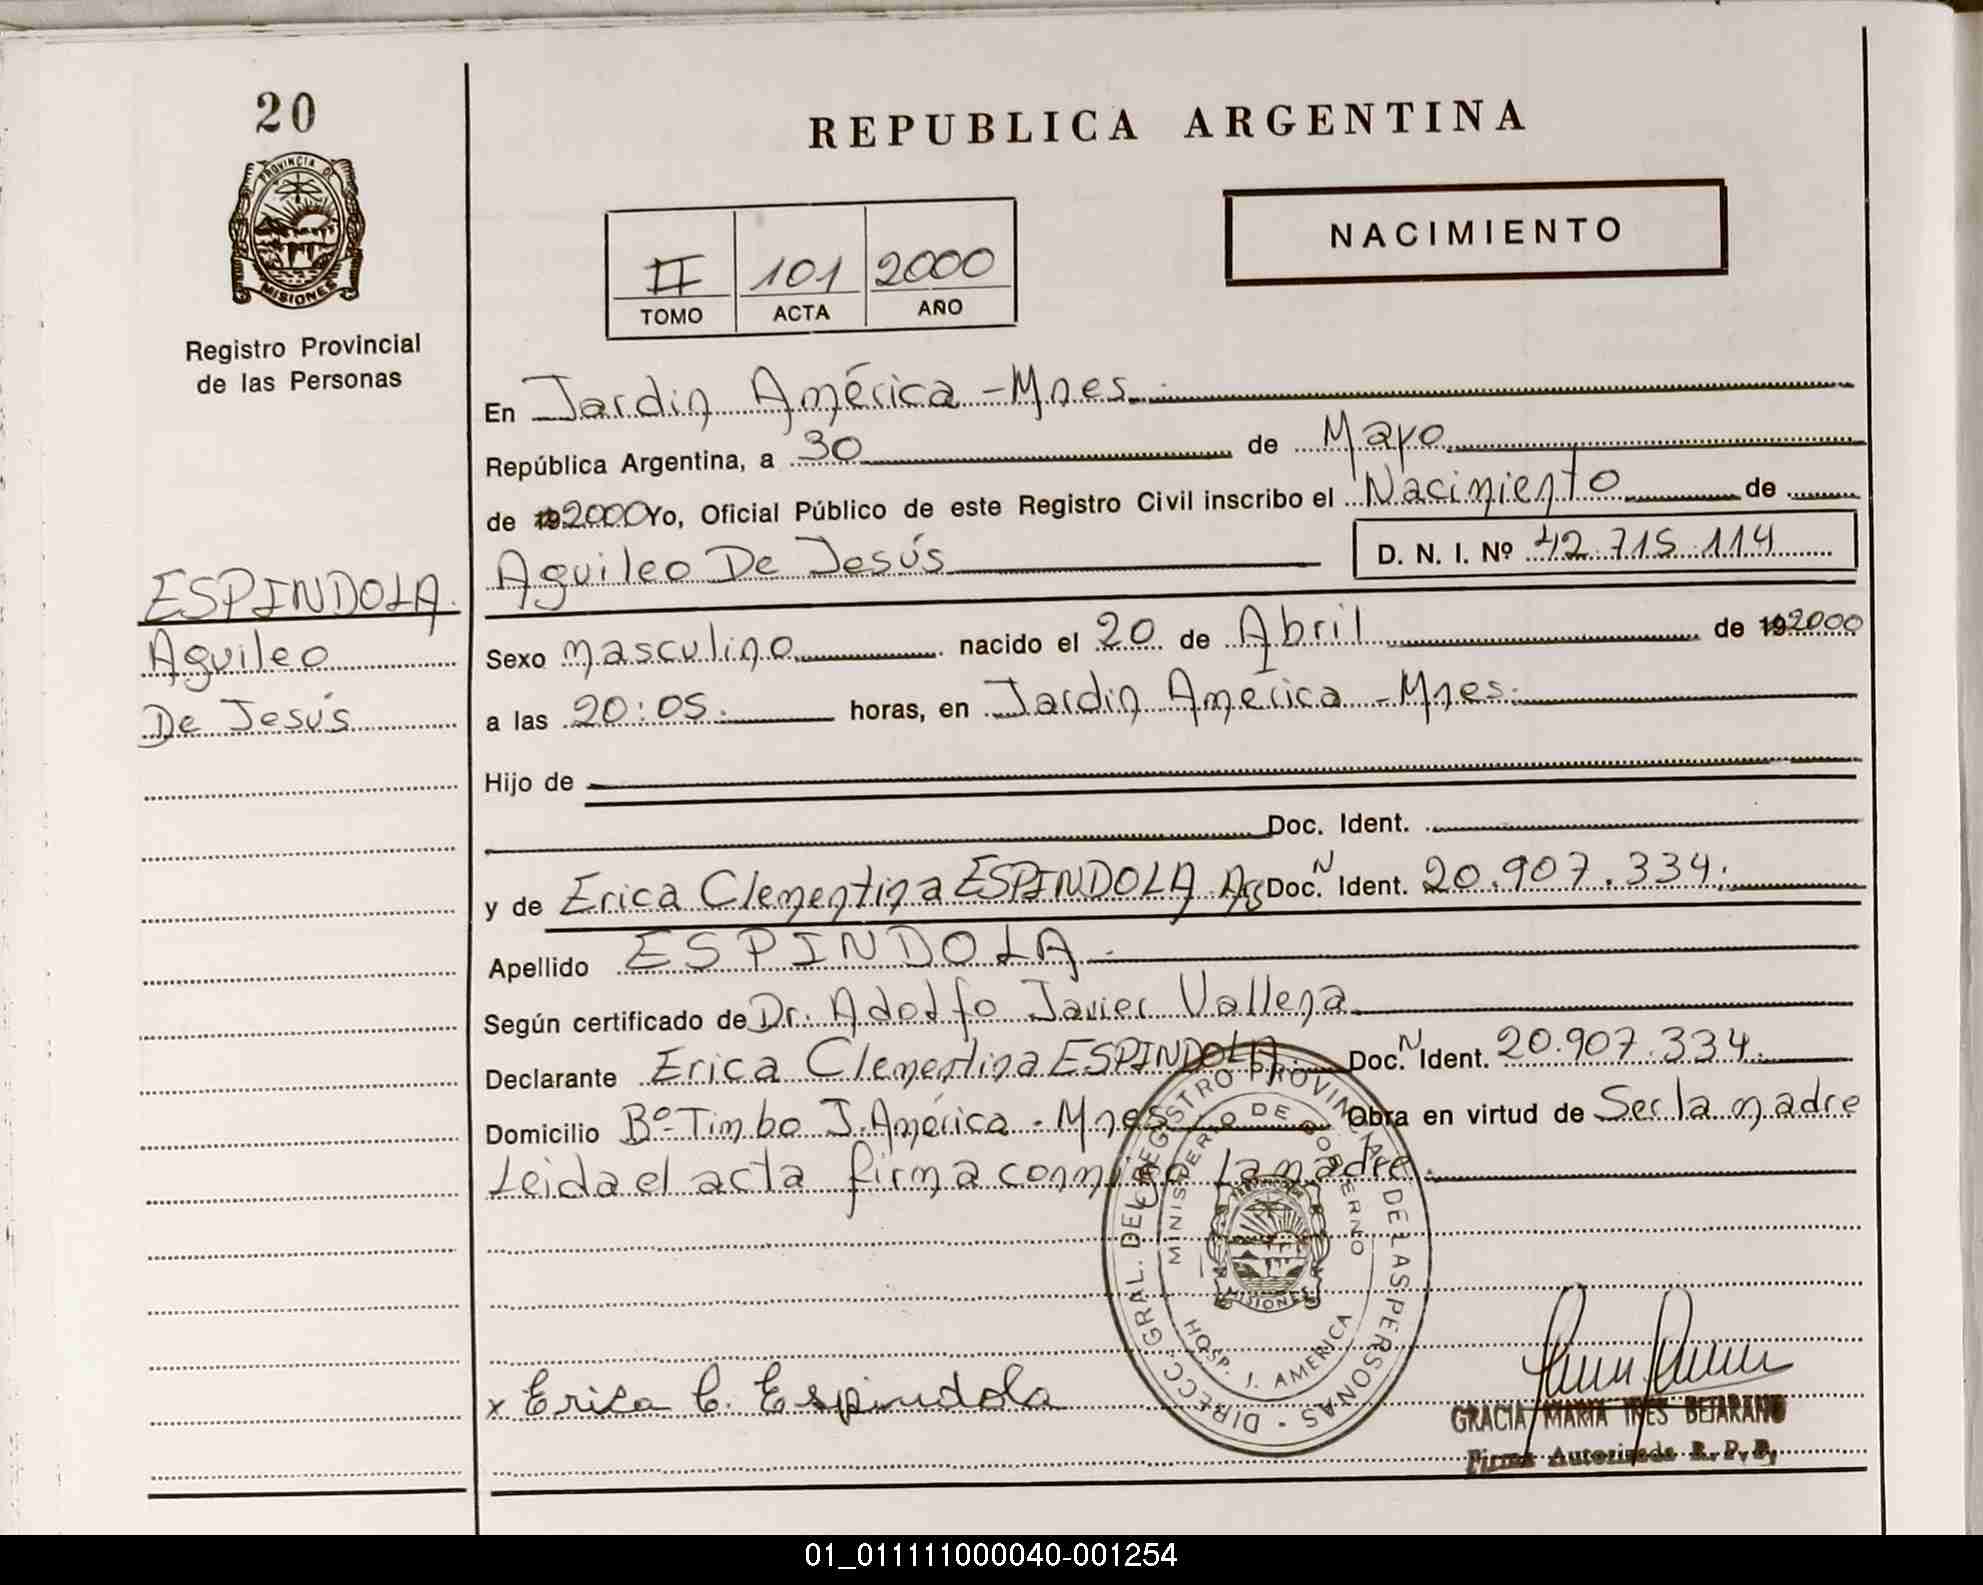 20
PROVINCIA DE
MISIONES
Registro Provincial
de las Personas
ESPINDOLA.
Aguileo
De Jesús
REPUBLICA ARGENTINA
NACIMIENTO
II 101 2000
TOMO ACTA AÑO
En Jardin América - Mnes.
República Argentina, a 30 de Mayo
de 192000 Yo, Oficial Público de este Registro Civil inscribo el Nacimiento de
Aguileo De Jesús D. N. I. Nº 42.715.114
Sexo masculino nacido el 20 de Abril de 192000
a las 20:05. horas, en Jardin America - Mnes.
Hijo de
Doc. Ident.
y de Erica Clementina ESPINDOLA Arg Doc. N Ident. 20.907.334.
Apellido ESPINDOLA.
Según certificado de Dr. Adolfo Javier Vallena
Declarante Erica Clementina ESPINDOLA. Doc. N Ident. 20.907.334.
Domicilio Bº Timbo J. América - Mnes Obra en virtud de Ser la madre
Leida el acta firma conmigo La madre.
DIRECC. GRAL. DEL REGISTRO PROVINCIAL DE LAS PERSONAS -
MINISTERIO DE GOBIERNO
MISIONES
HOSP. J. AMERICA
x Erica C. Espindola
GRACIA MARIA INES BEJARANO
Firma Autorizada R. P. P.
01_011111000040-001254